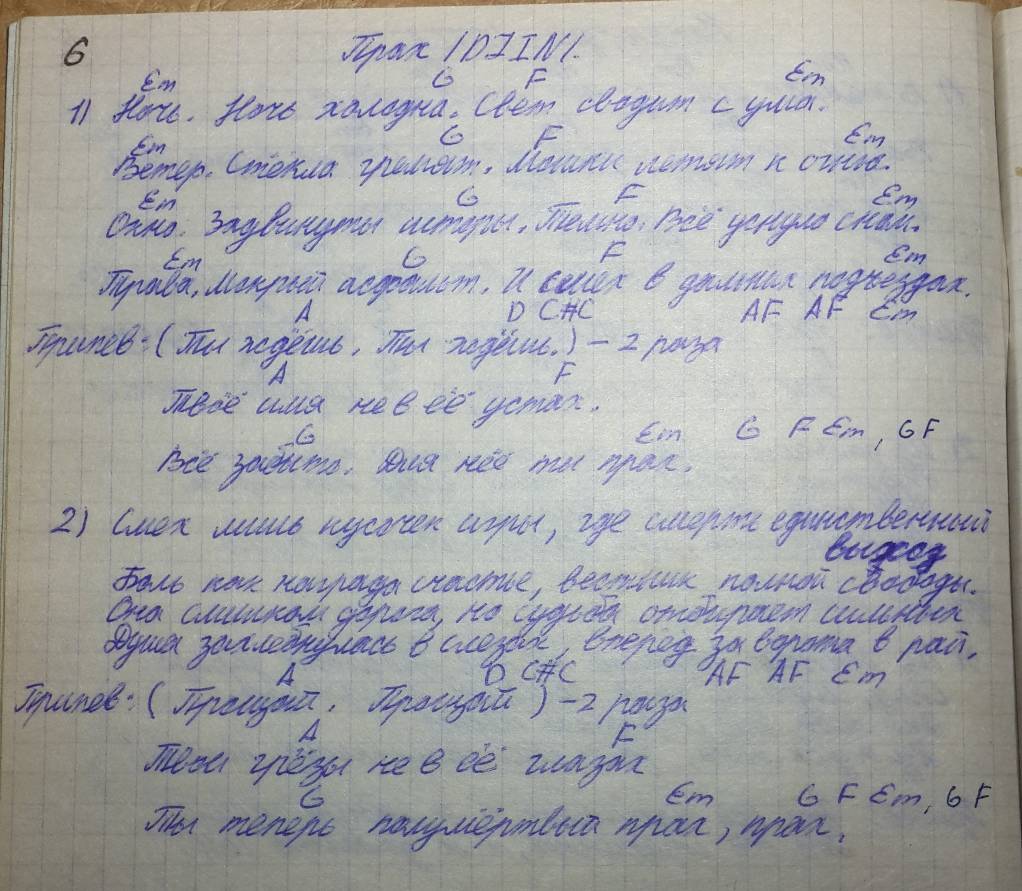 6
Прах /DJIN/.
Em G F Em
1) Ночь. Ночь холодна. Свет сводит с ума.
Em G F Em
Ветер. Стёкла гремят. Мошки летят к огню.
Em G F Em
Окно. Задвинуты шторы. Темно. Всё уснуло сном.
Em G F Em
Трава. Мокрый асфальт. И смех в дальних подъездах.
A D C#C AF AF Em
Припев: (Ты ждёшь. Ты ждёшь.) – 2 раза
A F
Твоё имя не в её устах.
G Em G F Em, GF
Всё забыто. Для неё ты прах.
2) Смех лишь кусочек игры, где смерть единственный
выход
Боль как награда счастье, вестник полной свободы.
Она слишком дорога, но судьба отбирает сильных
Душа захлебнулась в слезах, вперёд за ворота в рай.
A D C#C AF AF Em
Припев: (Прощай. Прощай) – 2 раза
A F
Твои грёзы не в её глазах
G Em G F Em, GF
Ты теперь полумёртвый прах, прах.